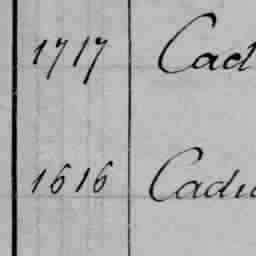 1717 Cad
1616 Cadu